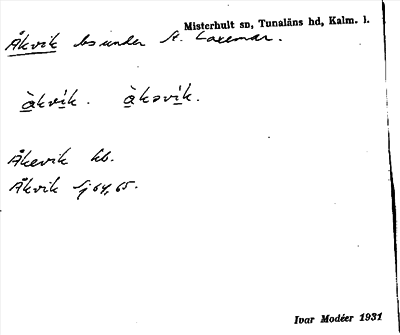 Misterhult sn, Tunaläns hd, Kalm. l.
Åkvik bs under St. Laxemar.
àkvík. àkəvík.
Åkevik hb.
Åkvik Gj 64, 65.
Ivar Modéer 1931